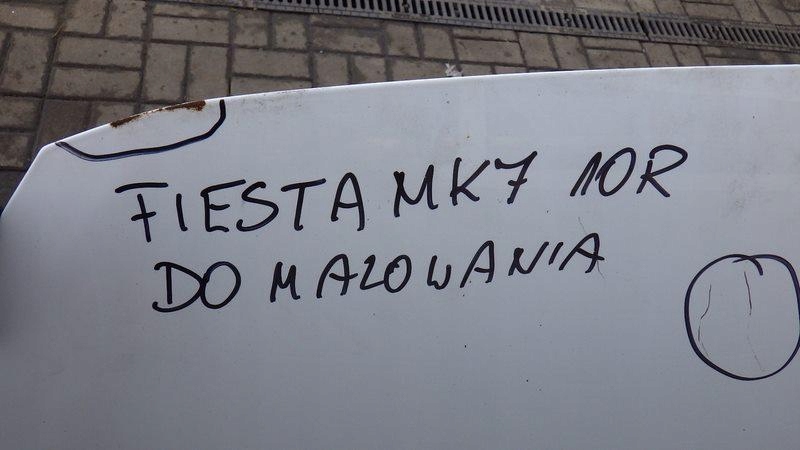 FIESTA MK7 10R
DO MALOWANIA